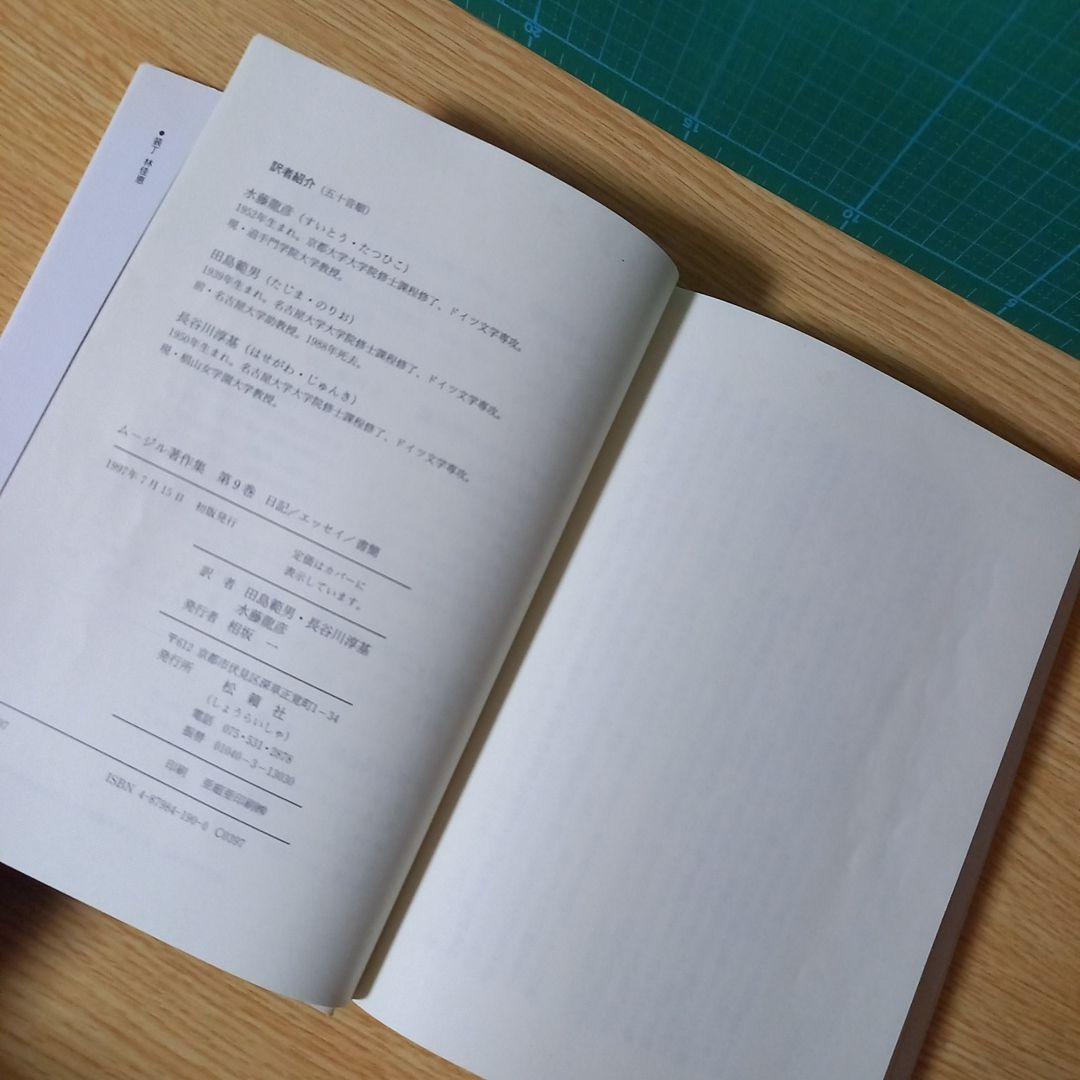 ●装丁 林佳恵
訳者紹介（五十音順）
水藤龍彦（すいとう・たつひこ）
1952年生まれ。京都大学大学院修士課程修了、ドイツ文学専攻。
現・追手門学院大学教授。
田島範男（たじま・のりお）
1939年生まれ。名古屋大学大学院修士課程修了、ドイツ文学専攻。
前・名古屋大学助教授。1988年死去。
長谷川淳基（はせがわ・じゅんき）
1950年生まれ。名古屋大学大学院修士課程修了、ドイツ文学専攻。
現・椙山女学園大学教授。
ムージル著作集 第9巻 日記／エッセイ／書簡
1997年7月15日 初版発行
定価はカバーに
表示しています。
訳 者 田島範男・長谷川淳基
水藤龍彦
発行者 相坂 一
〒612 京都市伏見区深草正覚町1－34
発行所
松籟社
（しょうらいしゃ）
電話 075・531・2878
振替 01040－3－13030
印刷 亜細亜印刷㈱
97
ISBN 4-87984-190-6 C0397
20
15
10
5